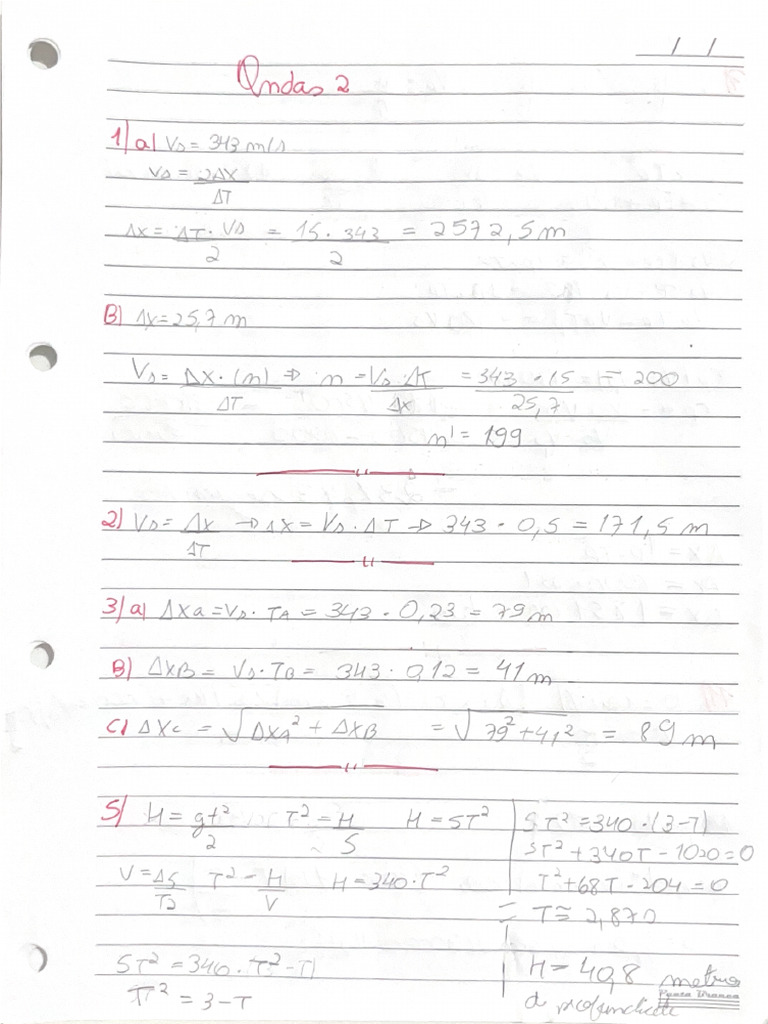 / /
Ondas 2
1) a) Vs = 343 m/s
Vs = 2ΔX
ΔT
Δx = ΔT · Vs = 15 · 343 = 2572,5 m
2 2
B) Δx = 25,7 m
Vs = Δx · (n) ⇒ n = Vs · Δt = 343 · 15 = 200
ΔT Δx 25,7
n' = 199
2) Vs = Δx → Δx = Vs · ΔT → 343 · 0,5 = 171,5 m
ΔT
3) a) Δxa = Vs · TA = 343 · 0,23 = 79 m
B) ΔxB = Vs · TB = 343 · 0,12 = 41 m
c) Δxc = √ΔxA² + ΔxB = √79² + 41² = 89 m
5) H = gt² T² = H H = 5T²
2 5
V = ΔS T² = H H = 340 · T²
T2 V
5T² = 340 · T² - T)
T² = 3 - T
5T² = 340 · (3 - T)
5T² + 340T - 1020 = 0
T² + 68T - 204 = 0
= T ≅ 2,870
H = 40,8 metros
d profundidade